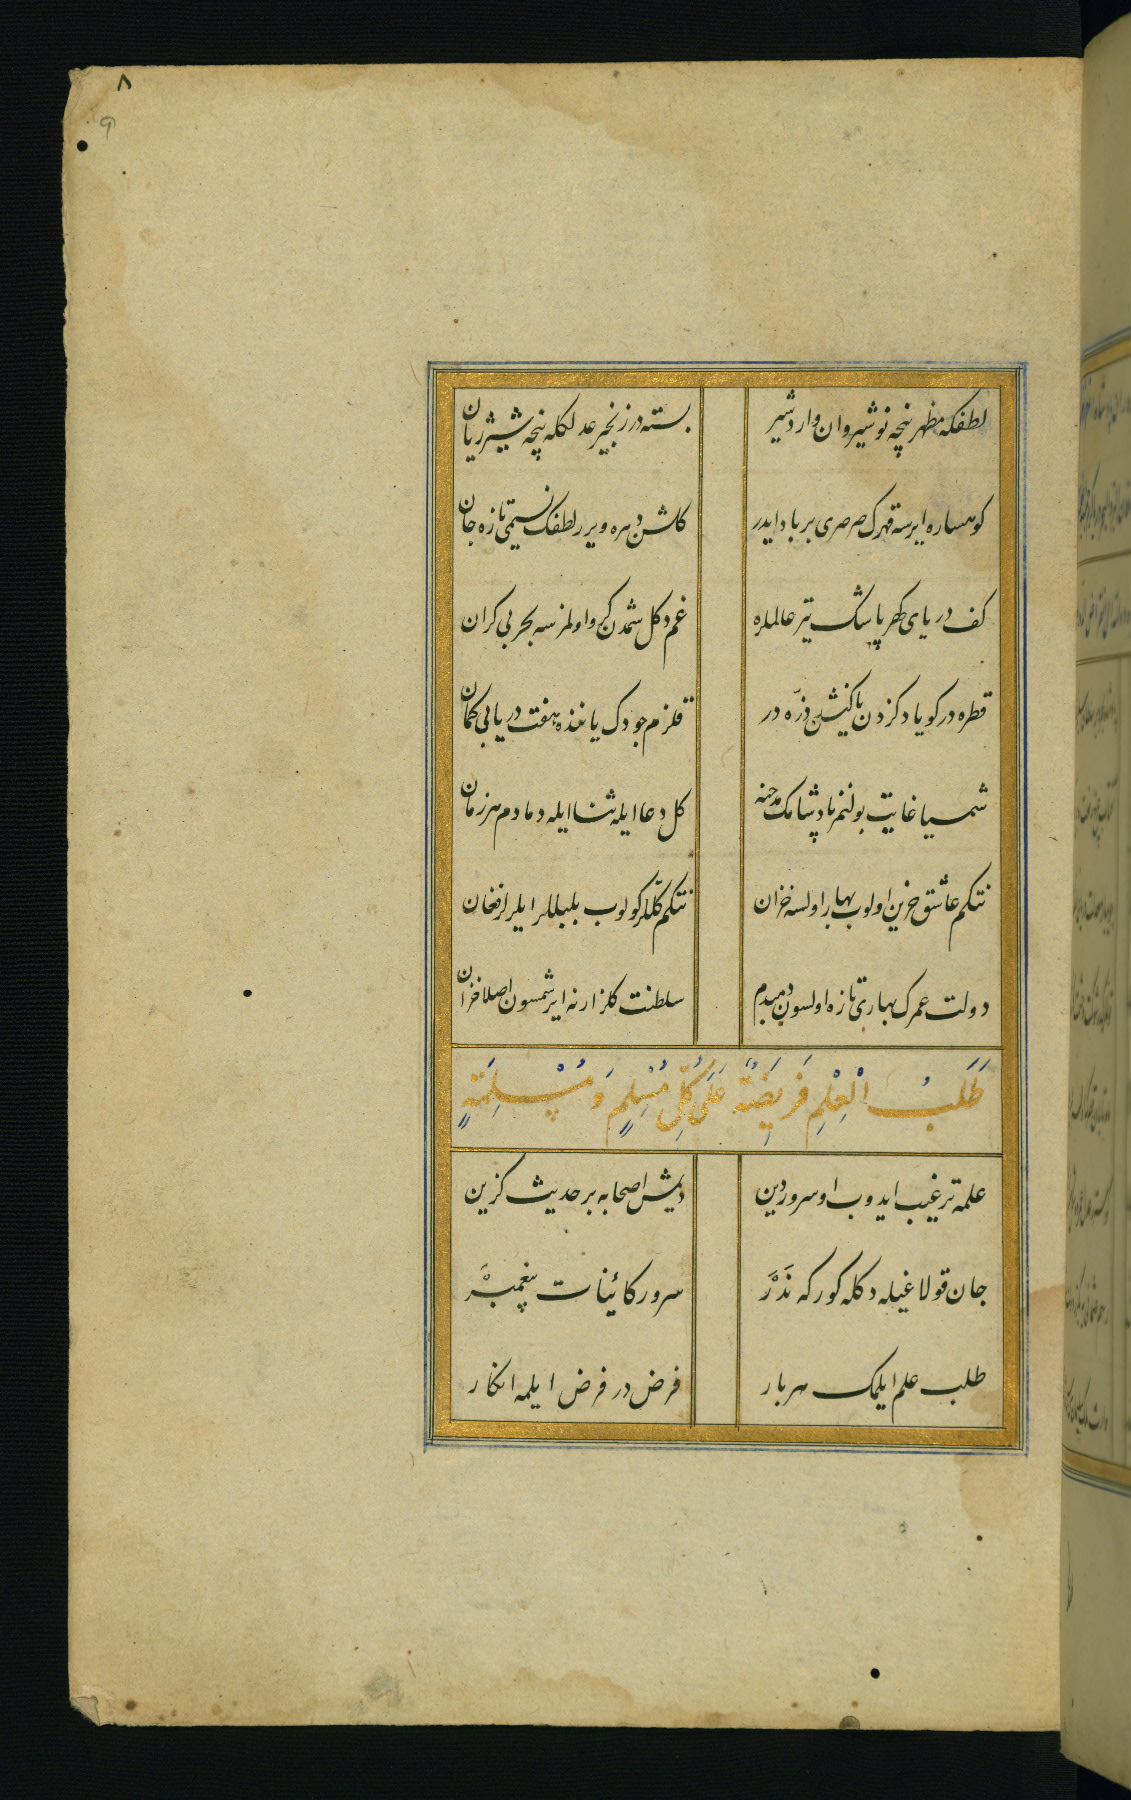 ۸
۹
لطفکه مظهر نیچه نوشیروان و اردشیر بسته در زنجیر عدلکله نیچه شیر ژیان
کوهساره ایرسه قهرک صرصری بر باد ایدر کلشن دهره ویرر لطفک نسیمی تازه جان
کف دریای کهر پاشک یتر عالملره غم دکل شمدن کرو اولمزسه بحر بی کران
قطره در کویا دکزدن یا کنشدن ذره در قلزم جودک یاننده هفت دریا بی کمان
شمسیا غایت بولنمز پادشامک مدحنه کل دعا ایله ثنا ایله دمادم هر زمان
نتکم عاشق حزین اولوب بهار اولسه خزان نتکم کللر کولوب بلبللر ایلرلر فغان
دولت عمرک بهاری تازه اولسون دمبدم سلطنت کلزارنه ایرشمسون اصلا خزان
طَلَبُ الْعِلْمِ فَرِيضَةٌ عَلَى كُلِّ مُسْلِمٍ وَ مُسْلِمَةٍ
علمه ترغیب ایدوب او سرور دین دیمش اصحابه بر حدیث کزین
جان قولاغیله دکله کور که نَدْر سرور کائنات پیغمبَر
طلب علم ایلمک هر بار فرض در فرض ایلمه انکار